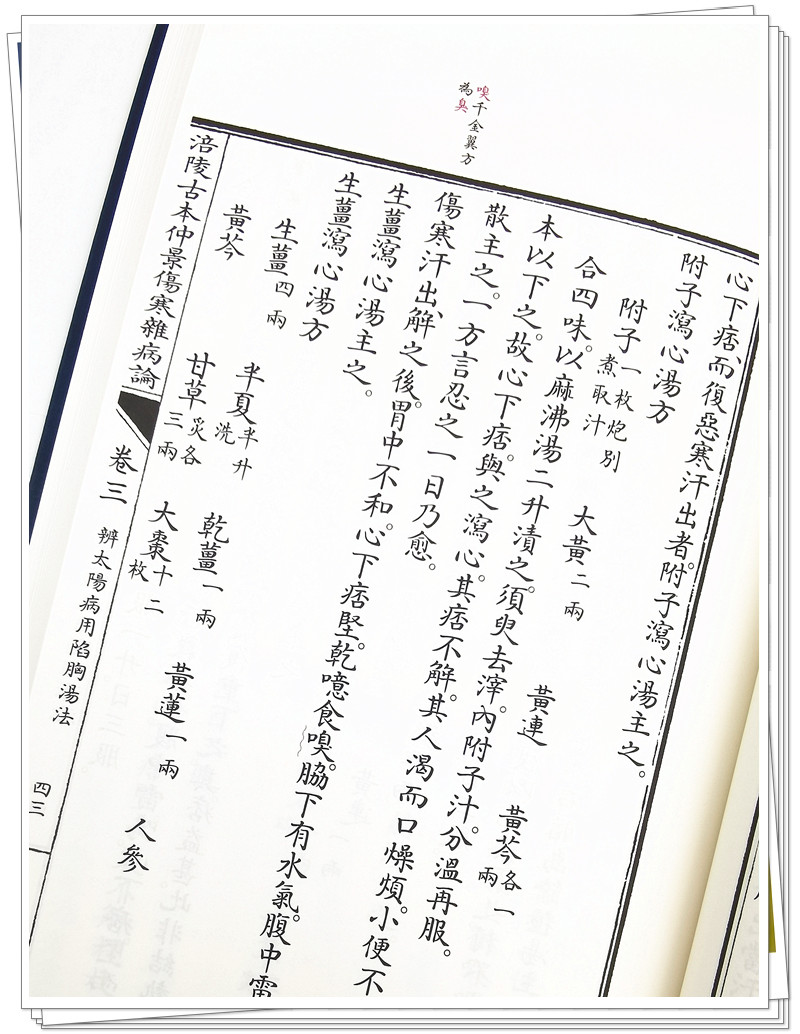 嗅千金翼方
為臭
心下痞、而復惡寒汗出者。附子瀉心湯主之。
附子瀉心湯方
附子一枚炮別煮取汁 大黃二兩 黃連 黃芩各一兩
合四味。以麻沸湯二升漬之。須臾去滓。內附子汁。分溫再服。
本以下之。故心下痞。與之瀉心。其痞不解。其人渴而口燥煩。小便不
散主之。一方言忍之一日乃愈。
傷寒汗出、解之後。胃中不和。心下痞堅。乾噫食嗅。脇下有水氣。腹中雷
生薑瀉心湯主之。
生薑瀉心湯方
生薑四兩 半夏半升洗 乾薑一兩 黃蓮一兩 人參
黃芩 甘草三兩炙各 大棗十二枚
涪陵古本仲景傷寒雜病論 卷三 辨太陽病用陷胸湯法 四三